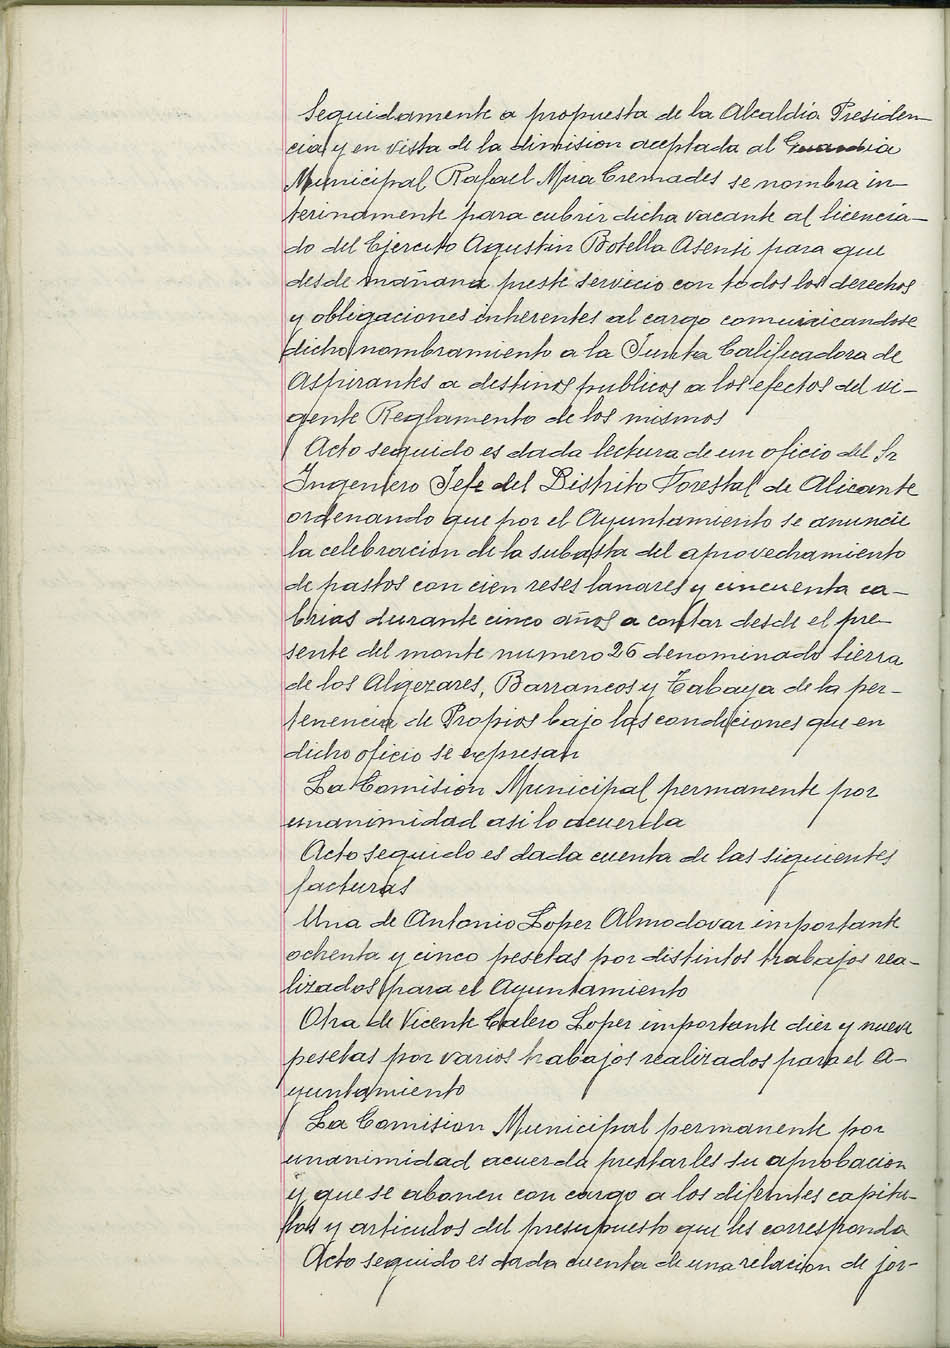 Seguidamente a propuesta de la Alcaldia Presiden-
cia y en vista de la dimision aceptada al Guardia
Municipal Rafael Mira Cremades se nombra in-
terinamente para cubrir dicha vacante al licencia-
do del Ejercito Agustin Botella Asensi para que
desde mañana preste servicio con todos los derechos
y obligaciones inherentes al cargo comunicandose
dicho nombramiento a la Junta Calificadora de
Aspirantes a destinos publicos a los efectos del vi-
gente Reglamento de los mismos
Acto seguido es dada lectura de un oficio del Sr
Ingeniero Jefe del Distrito Forestal de Alicante
ordenando que por el Ayuntamiento se anuncie
la celebracion de la subasta del aprovechamiento
de pastos con cien reses lanares y cincuenta ca-
brias durante cinco años a contar desde el pre-
sente del monte numero 26 denominado Sierra
de los Algezares, Barrancos y Tabaya de la per-
tenencia de Propios bajo las condiciones que en
dicho oficio se expresan
La Comision Municipal permanente por
unanimidad asi lo acuerda
Acto seguido es dada cuenta de las siguientes
facturas
Una de Antonio Lopez Almodovar importante
ochenta y cinco pesetas por distintos trabajos rea-
lizados para el Ayuntamiento
Otra de Vicente Calero Lopez importante diez y nueve
pesetas por varios trabajos realizados para el A-
yuntamiento
La Comision Municipal permanente por
unanimidad acuerda prestarles su aprobacion
y que se abonen con cargo a los difentes capitu-
los y articulos del presupuesto que les corresponda
Acto seguido es dada cuenta de una relacion de jor-